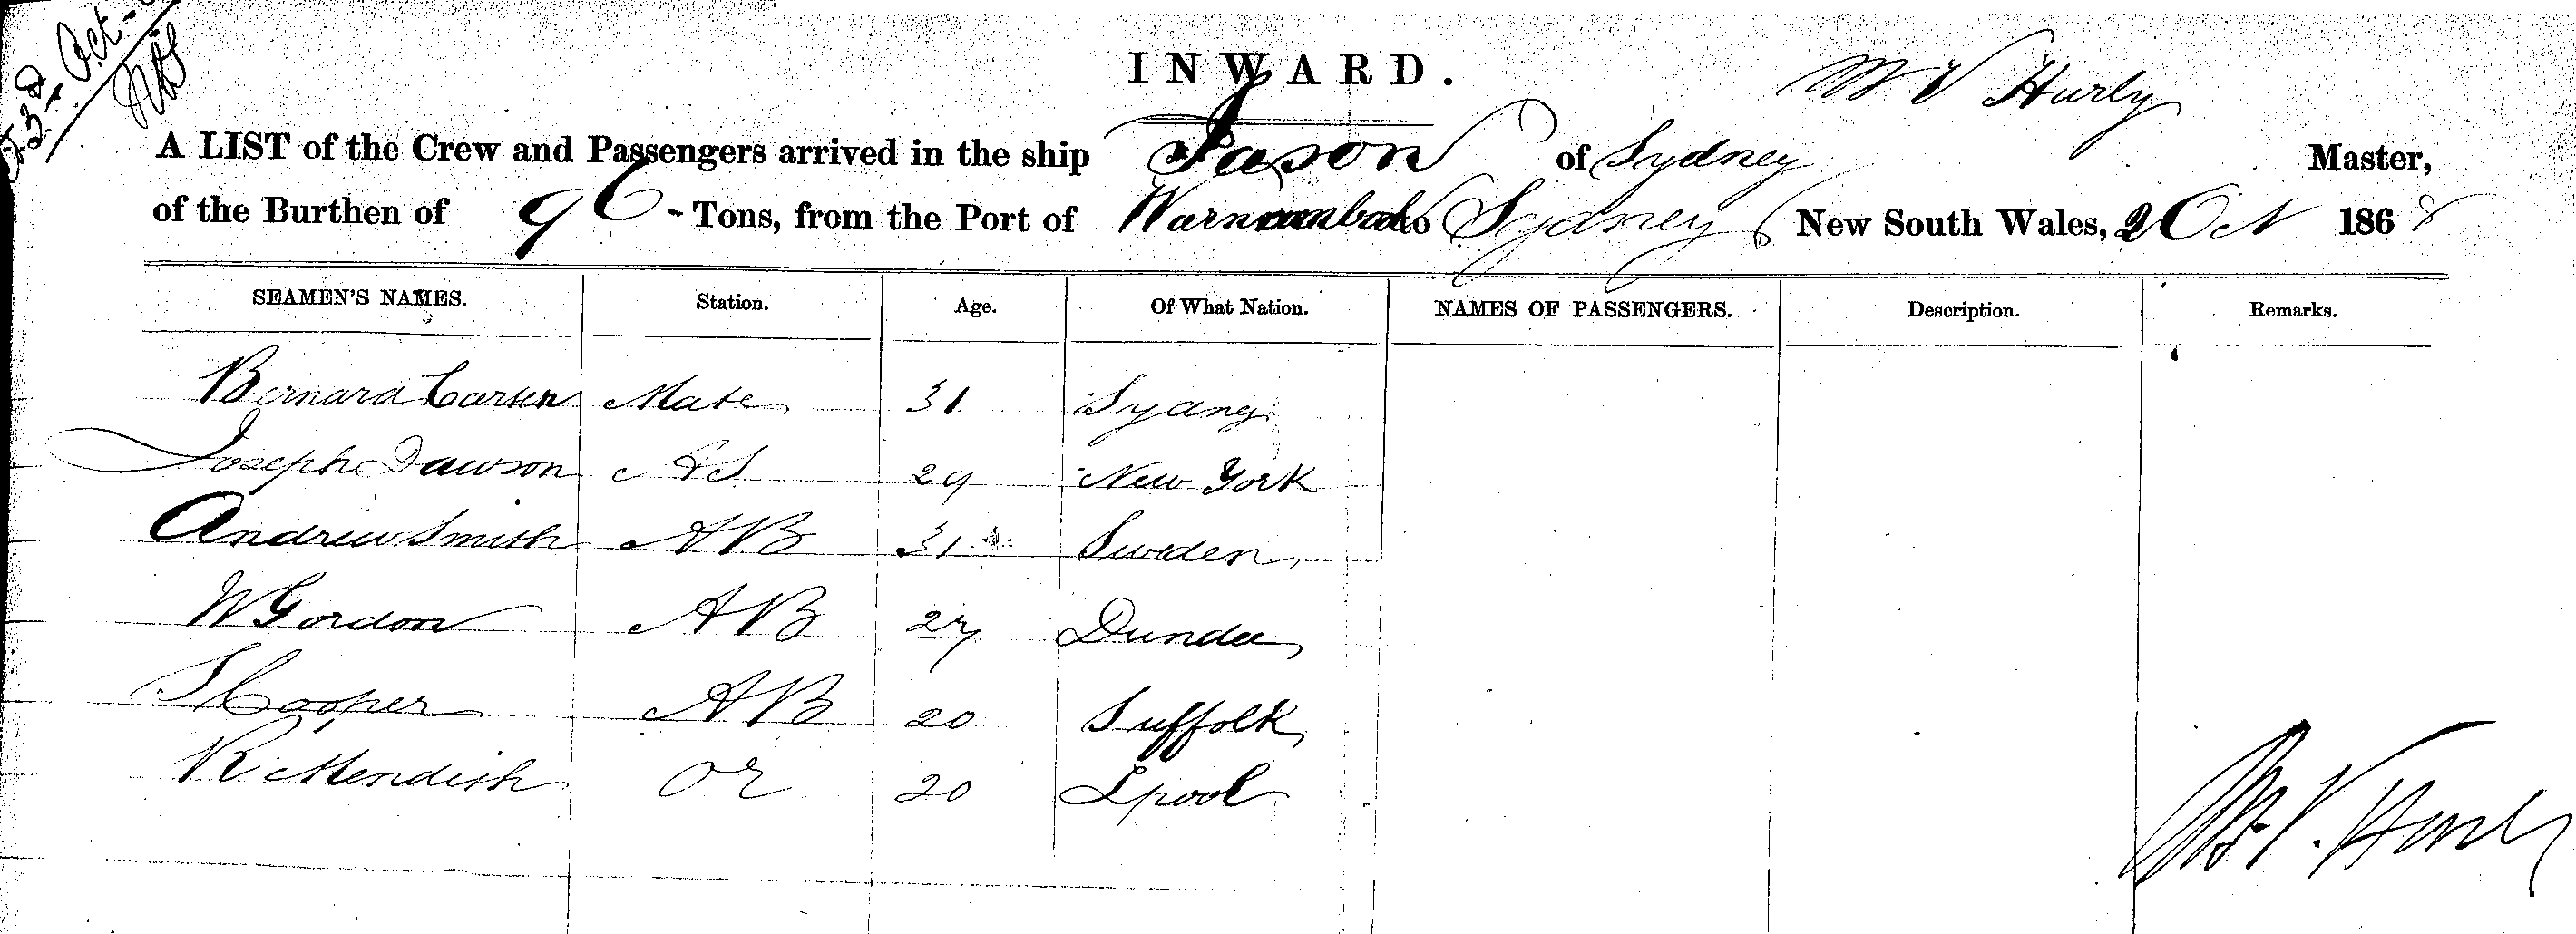 3rd Oct
INWARD.
W V Hurly
A LIST of the Crew and Passengers arrived in the ship Jason of Sydney Master,
of the Burthen of 96 - Tons, from the Port of Warnambool to Sydney New South Wales, 2 Oct 1868
SEAMEN'S NAMES. Station. Age. Of What Nation. NAMES OF PASSENGERS. Description. Remarks.
Bernard Carsen Mate 31 Sydney
Joseph Dawson 29 New York
Andrew Smith AB 31 Sweden
W Gordon AB 27 Dundee
J Cooper AB 20 Suffolk
R Mendish 20 Lpool
W V. Hurly